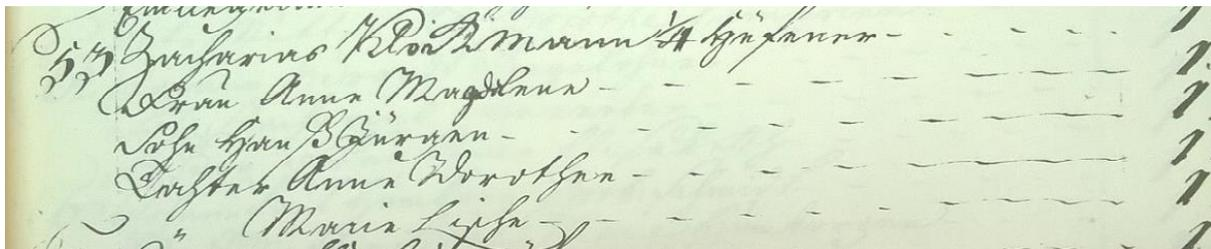 53 Zacharias Klöckmann 1/4 Hüfener - - - - - 1
Frau Anne Magdlene - - - - - 1
Sohn Hanß Jürgen - - - - - 1
Tochter Anne Dorothee - - - - - 1
" Marie Lische - - - - - 1